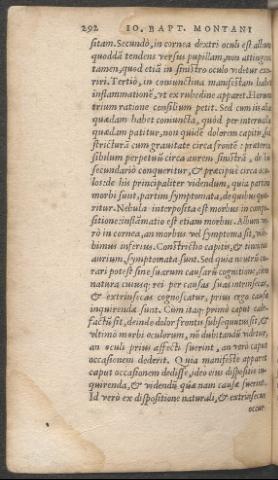 292 IO. BAPT. MONTANI
sitam. Secundò, in cornea dextri oculi est album
quoddã tendens versus pupillam, non attingens
tamen, quod etiã in sinistro oculo videtur exo-
riri. Tertiò, in coniunctiua manifestam habet
inflammationẽ, vt ex rubedine apparet. Horum
trium ratione consilium petit. Sed cum iis alia
quædam habet coniuncta, quòd per interualla
quædam patitur, non quidẽ dolorem capitis, sed
stricturã cum grauitate circa frontẽ: præterea
sibilum perpetuũ circa aurem sinistrã, de
secundariò conqueritur, & præcipuè circa ocu
los: de his principaliter videndum, quia partim
morbi sunt, partim symptomata, de quibus quæ-
ritur. Nebula interposita est morbus in compo-
sitione: inflãmatio est etiam morbus. Album ve
rò in cornea, an morbus vel symptoma sit, vi-
bimus inferius. Constrictio capitis, & tinnitus
aurium, symptomata sunt. Sed quia neutrũ cu-
rari potest sine suarum causarũ cognitione, cum
natura cuiusq; rei per causas suas intrinsecas,
& extrinsecas cognoscatur, prius ergo causæ
inquirendæ sunt. Cum itaq; primò caput cale-
factũ sit, deinde dolor frontis subsequutus sit, &
vltimò morbi oculorum, nõ dubitandũ videtur,
an oculi prius affecti fuerint, an verò caput
occasionem dederit. Quia manifestè apparet
caput occasionem dedisse, ideo eius dispositio in-
quirenda, & videndũ quænam causa fuerit.
Id verò ex dispositione naturali, & extrinsecus
occur-